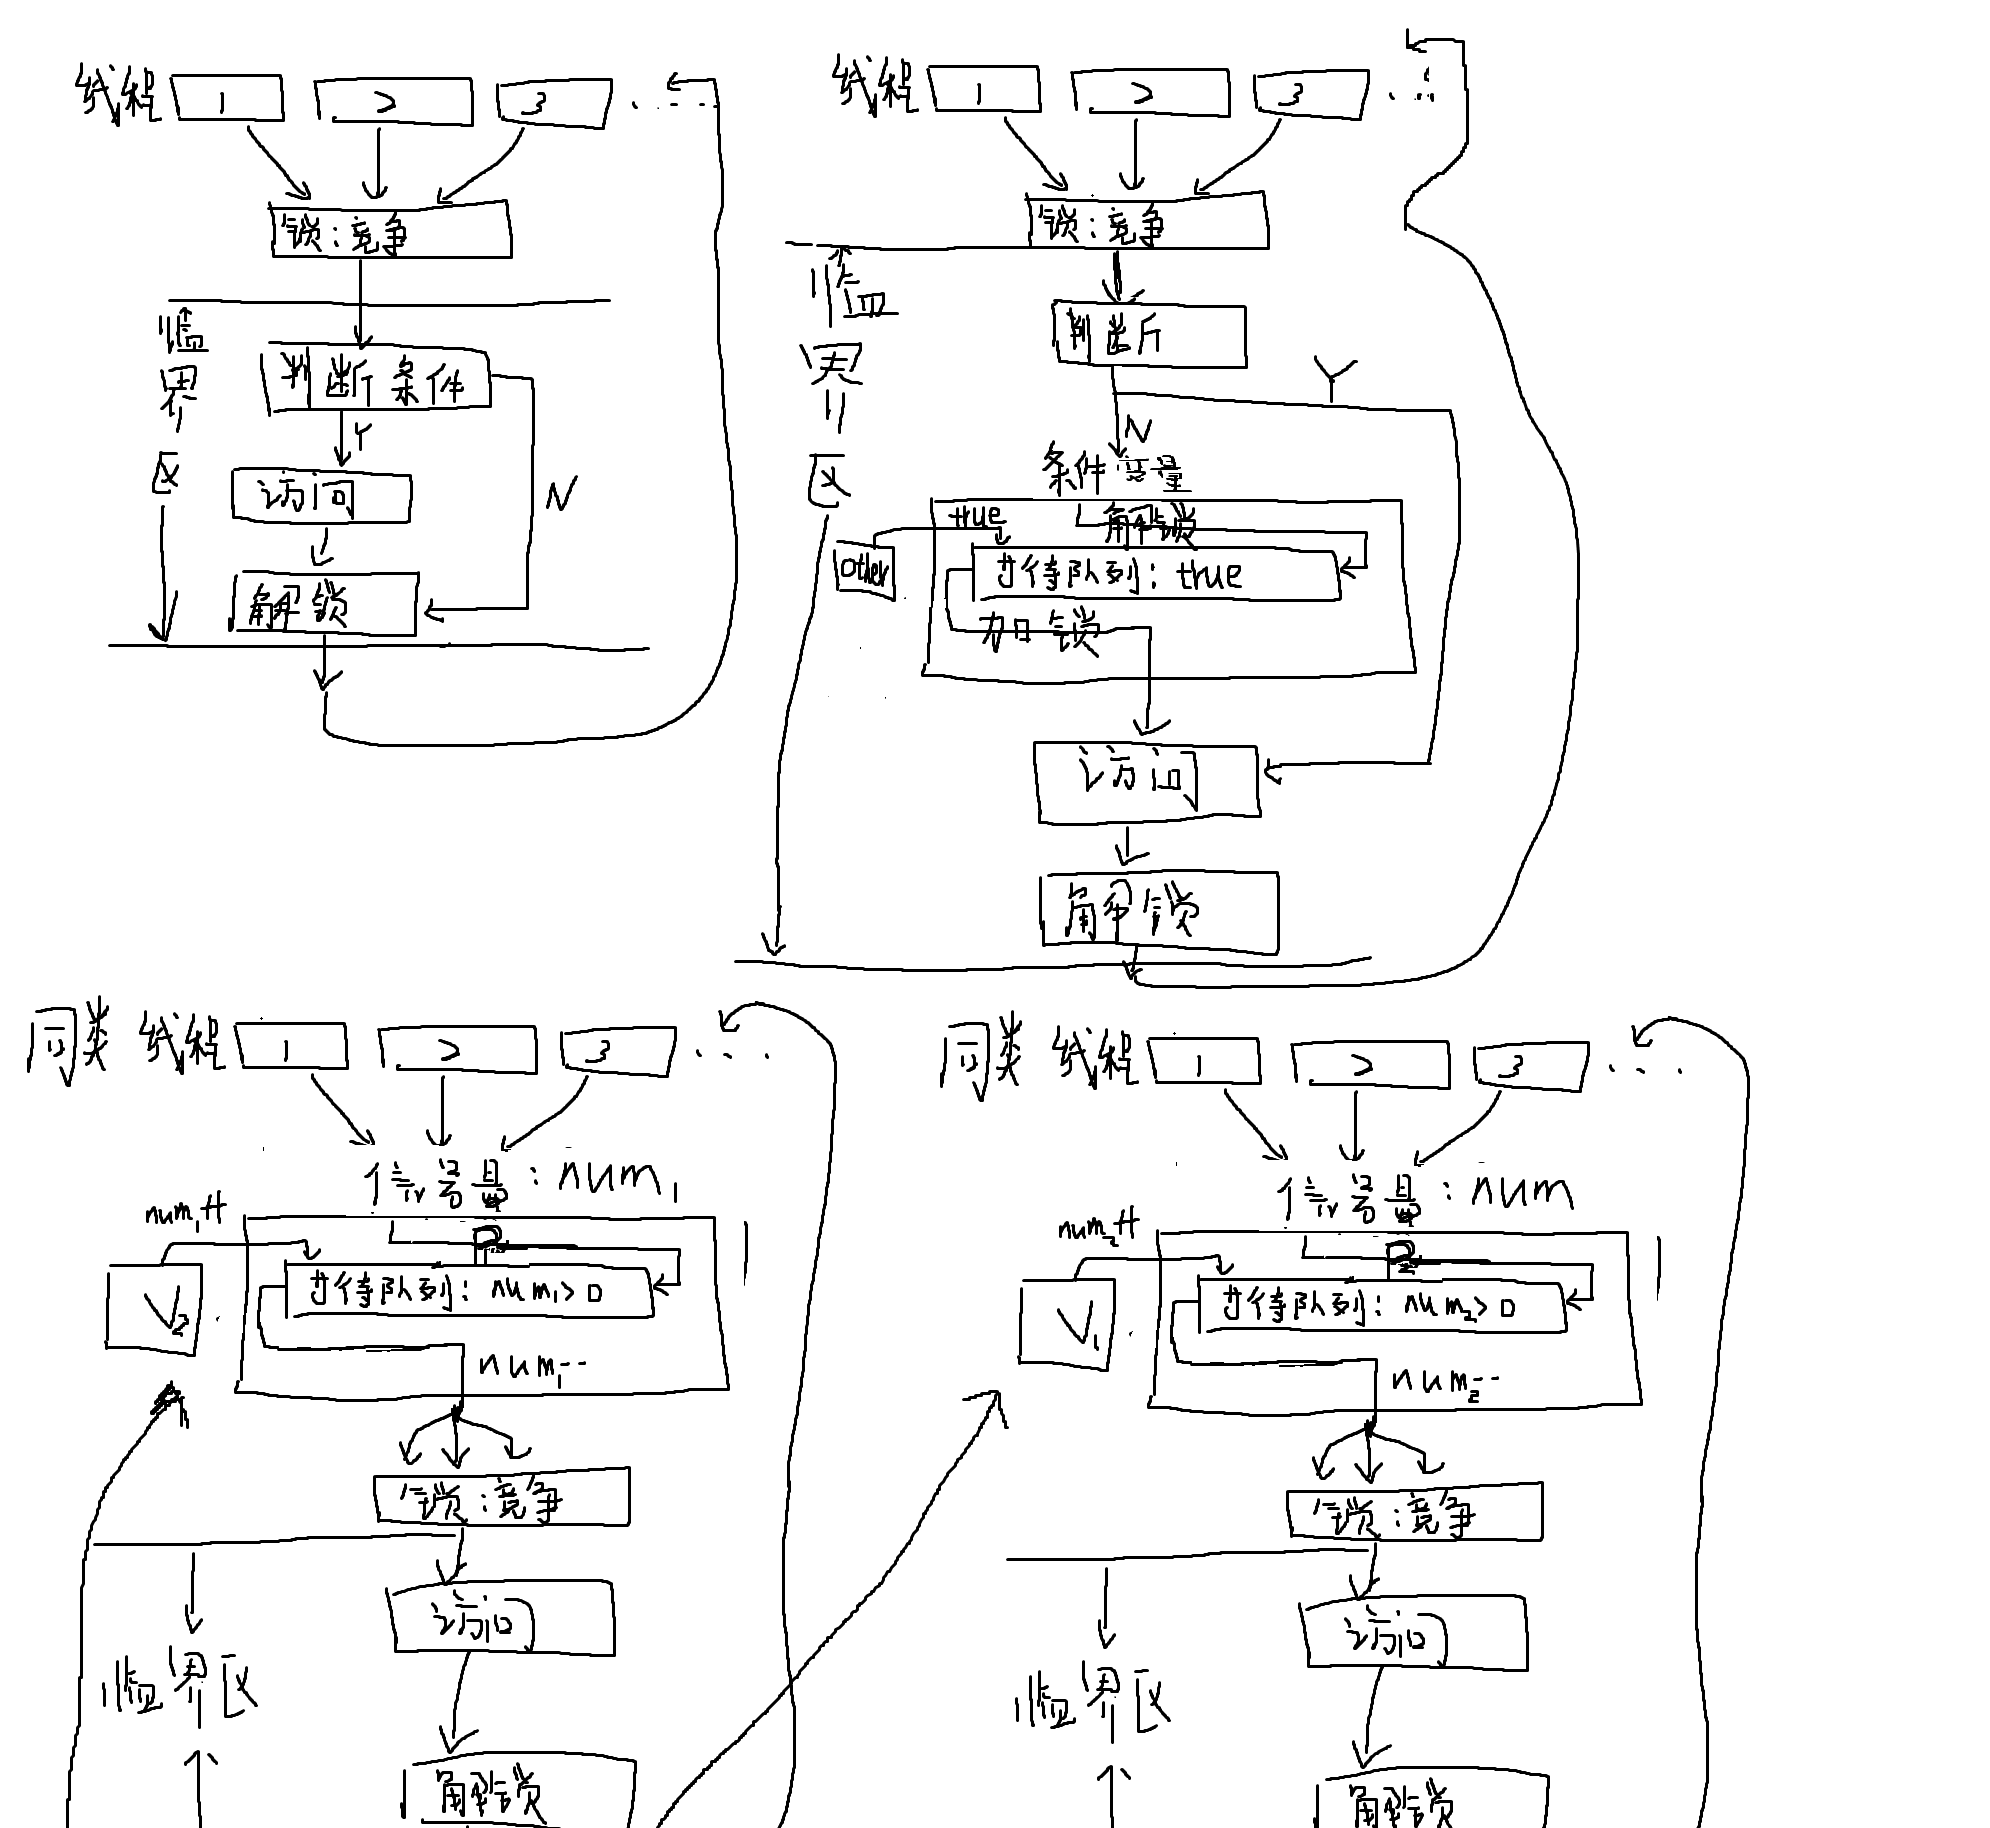 线程 1 2 3 ....
锁:竞争
临界区
判断条件
Y
N
访问
解锁
线程 1 2 3 ...
锁:竞争
临界区
判断
Y
N
条件变量
true 解锁
other
等待队列:true
加锁
访问
解锁
同类 线程 1 2 3 ...
信号量:num1
num1++
P1
V2
等待队列:num1>0
num1--
锁:竞争
访问
临界区
解锁
同类 线程 1 2 3 ...
信号量:num
num2++
P2
V1
等待队列:num2>0
num2--
锁:竞争
访问
临界区
解锁